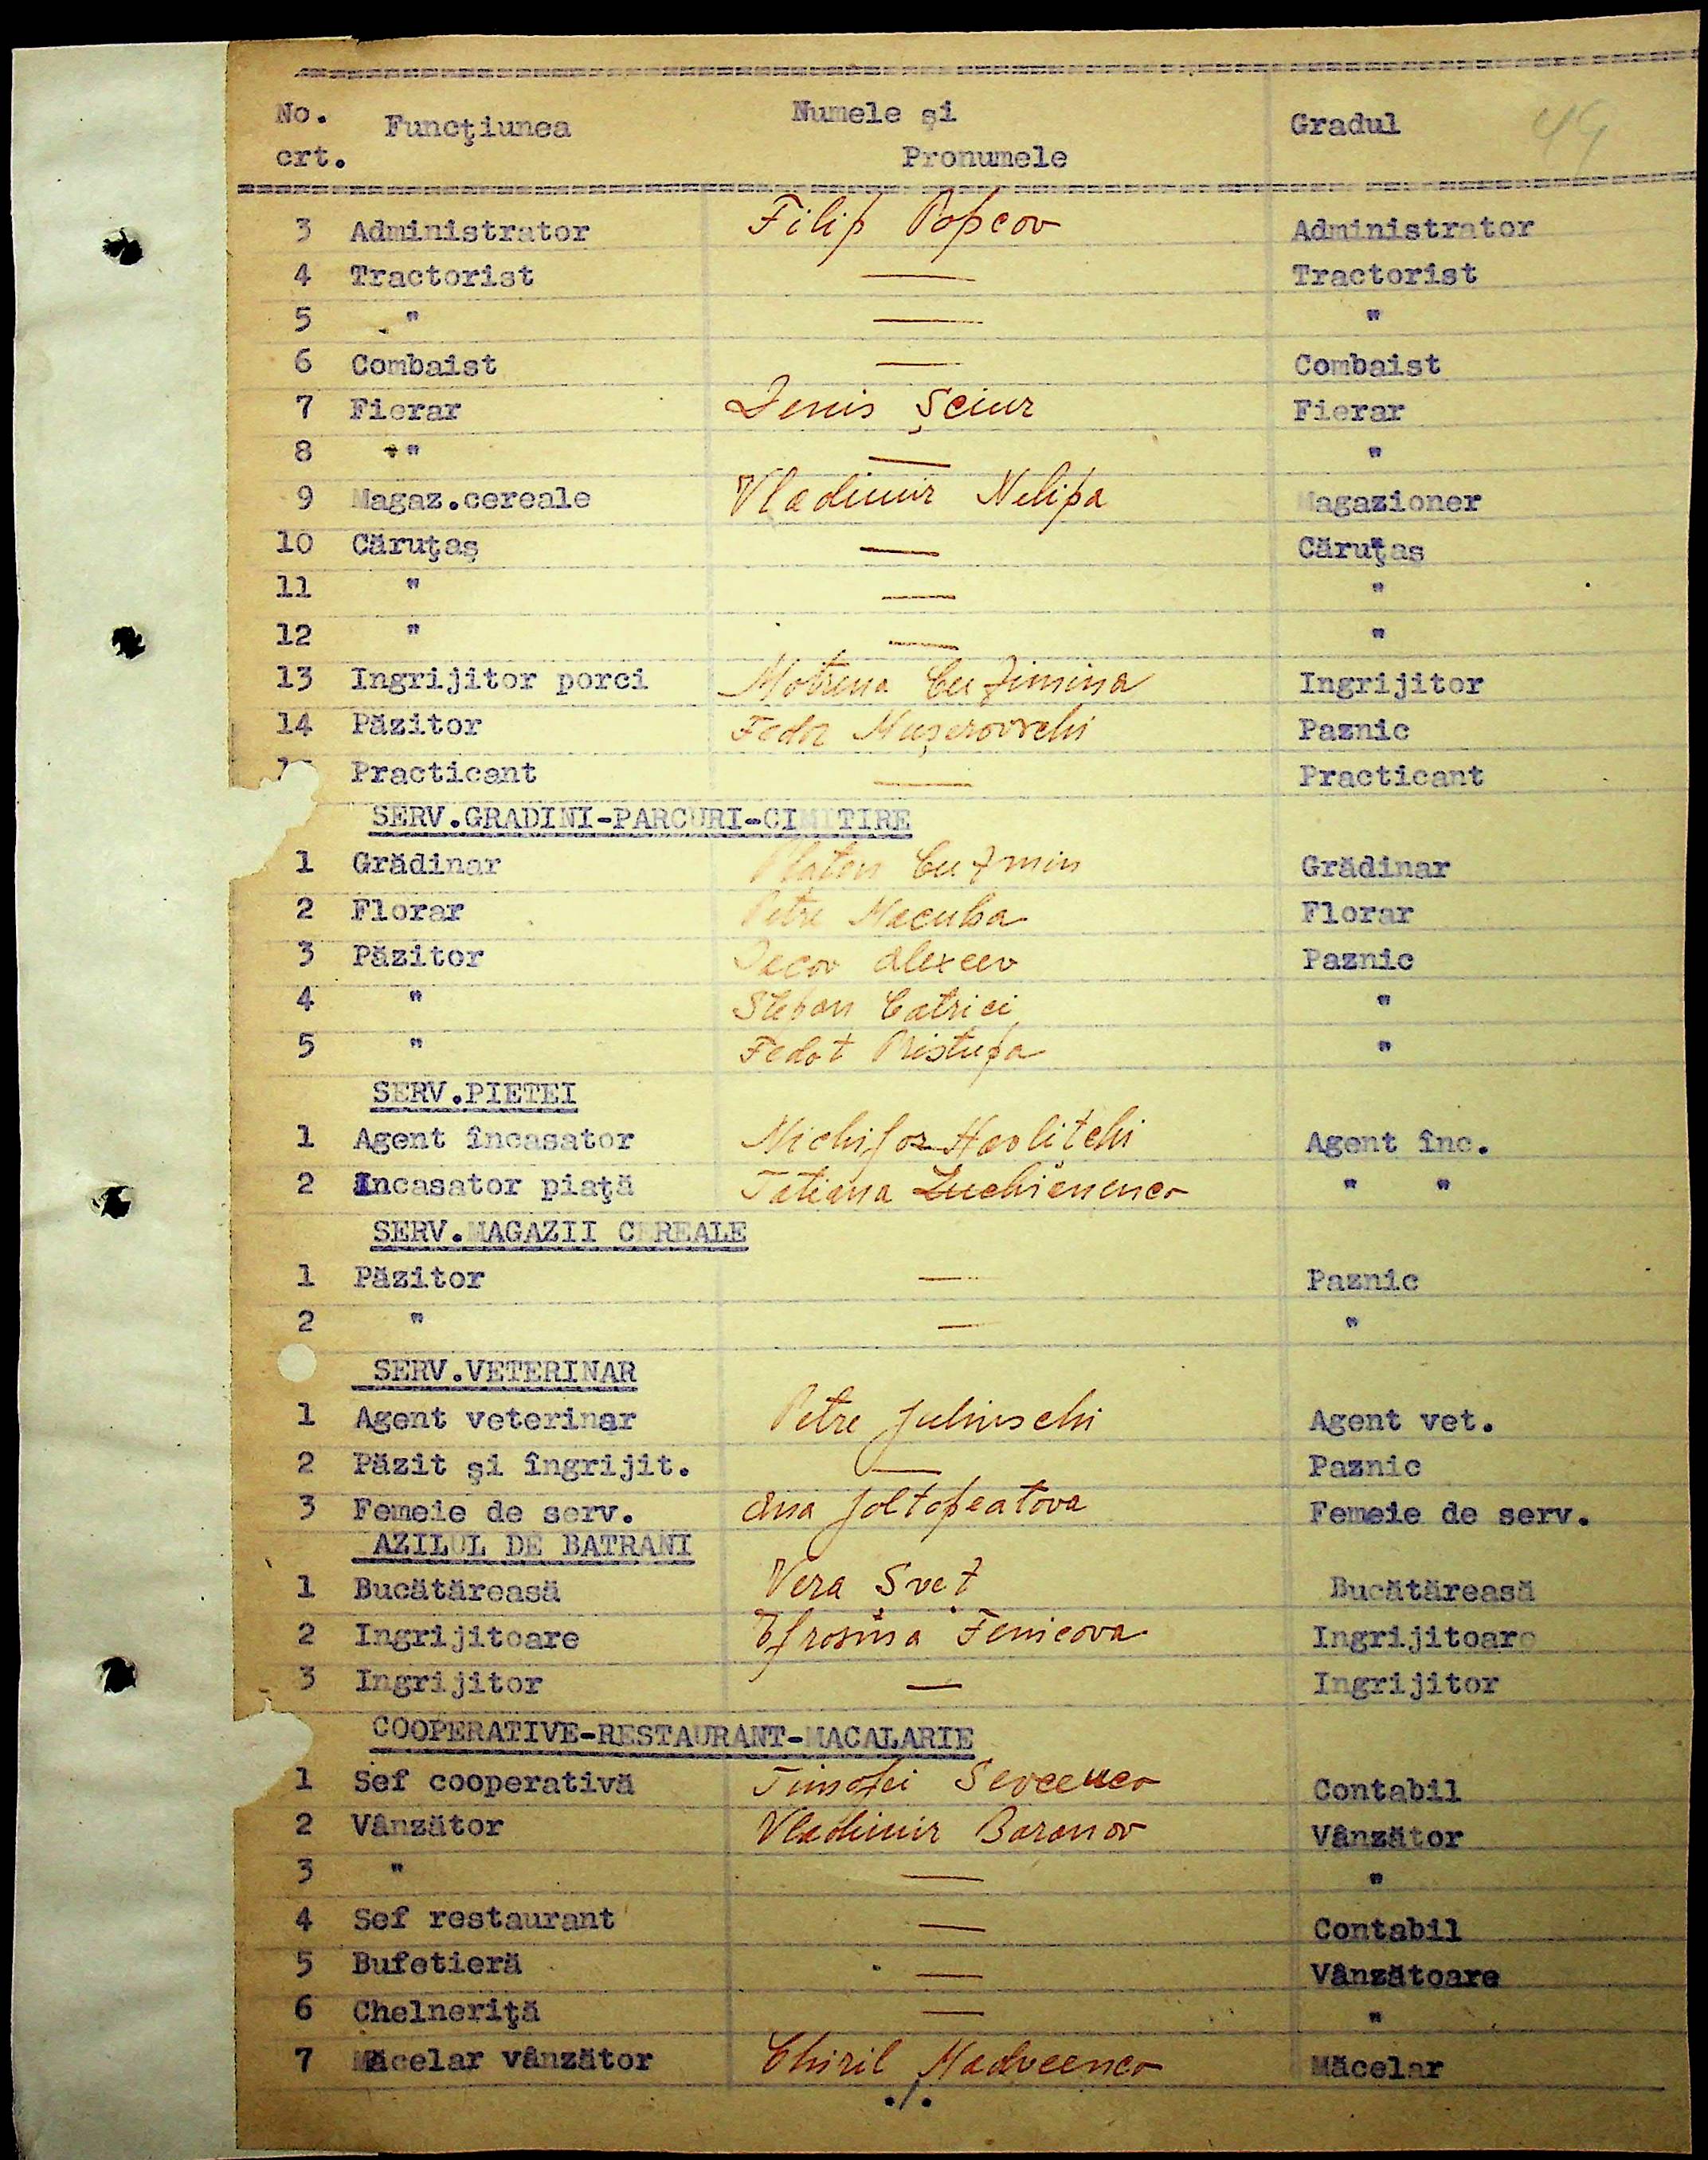 No. crt. Funcţiunea Numele şi Pronumele Gradul 49
3 Administrator Filip Popcov Administrator
4 Tractorist — Tractorist
5 " — "
6 Combaist — Combaist
7 Fierar Denis Şciur Fierar
8 " — "
9 Magaz.cereale Vladimir Nelipa Magazioner
10 Căruţaş — Căruţas
11 " — "
12 " — "
13 Ingrijitor porci Motrena Cuzimina Ingrijitor
14 Păzitor Fedor Paznic
Practicant — Practicant
SERV.GRADINI-PARCURI-CIMITIRE
1 Grădinar Platon Cuzmin Grădinar
2 Florar Petre Macuha Florar
3 Păzitor Iacov Alexeev Paznic
4 " Stepan Catrici "
5 " Fedot Pristupa "
SERV.PIETEI
1 Agent încasator Nichifor Havlitchi Agent înc.
2 Incasator piaţă Tatiana " "
SERV.MAGAZII CEREALE
1 Păzitor — Paznic
2 " — "
SERV.VETERINAR
1 Agent veterinar Petre Julinschi Agent vet.
2 Păzit şi îngrijit. — Paznic
3 Femeie de serv. Ana Joltopeatova Femeie de serv.
AZILUL DE BATRANI
1 Bucătăreasă Vera Şveţ Bucătăreasă
2 Ingrijitoare Efrosina Fenicova Ingrijitoare
3 Ingrijitor — Ingrijitor
COOPERATIVE-RESTAURANT-MACALARIE
1 Sef cooperativă Timofei Sevcenco Contabil
2 Vânzător Vladimir Baranov Vânzător
3 " — "
4 Sef restaurant — Contabil
5 Bufetieră — Vânzătoare
6 Chelneriţă — "
7 Măcelar vânzător Chiril Madveenco Măcelar
./.